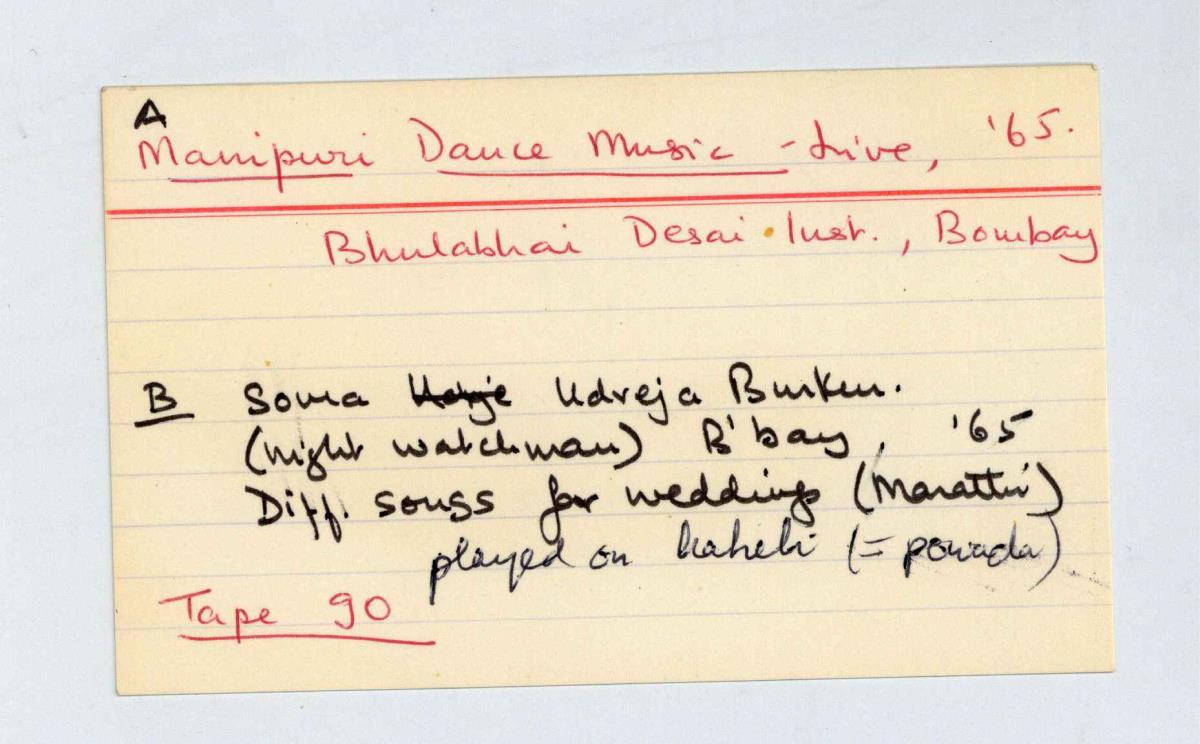 A
Manipuri Dance Music - Live, '65.
Bhulabhai Desai Inst., Bombay
B Soma Udreja
(night watchman) B'bay, '65
Diff. songs for weddings (Marathi)
played on (= powada)
Tape 90